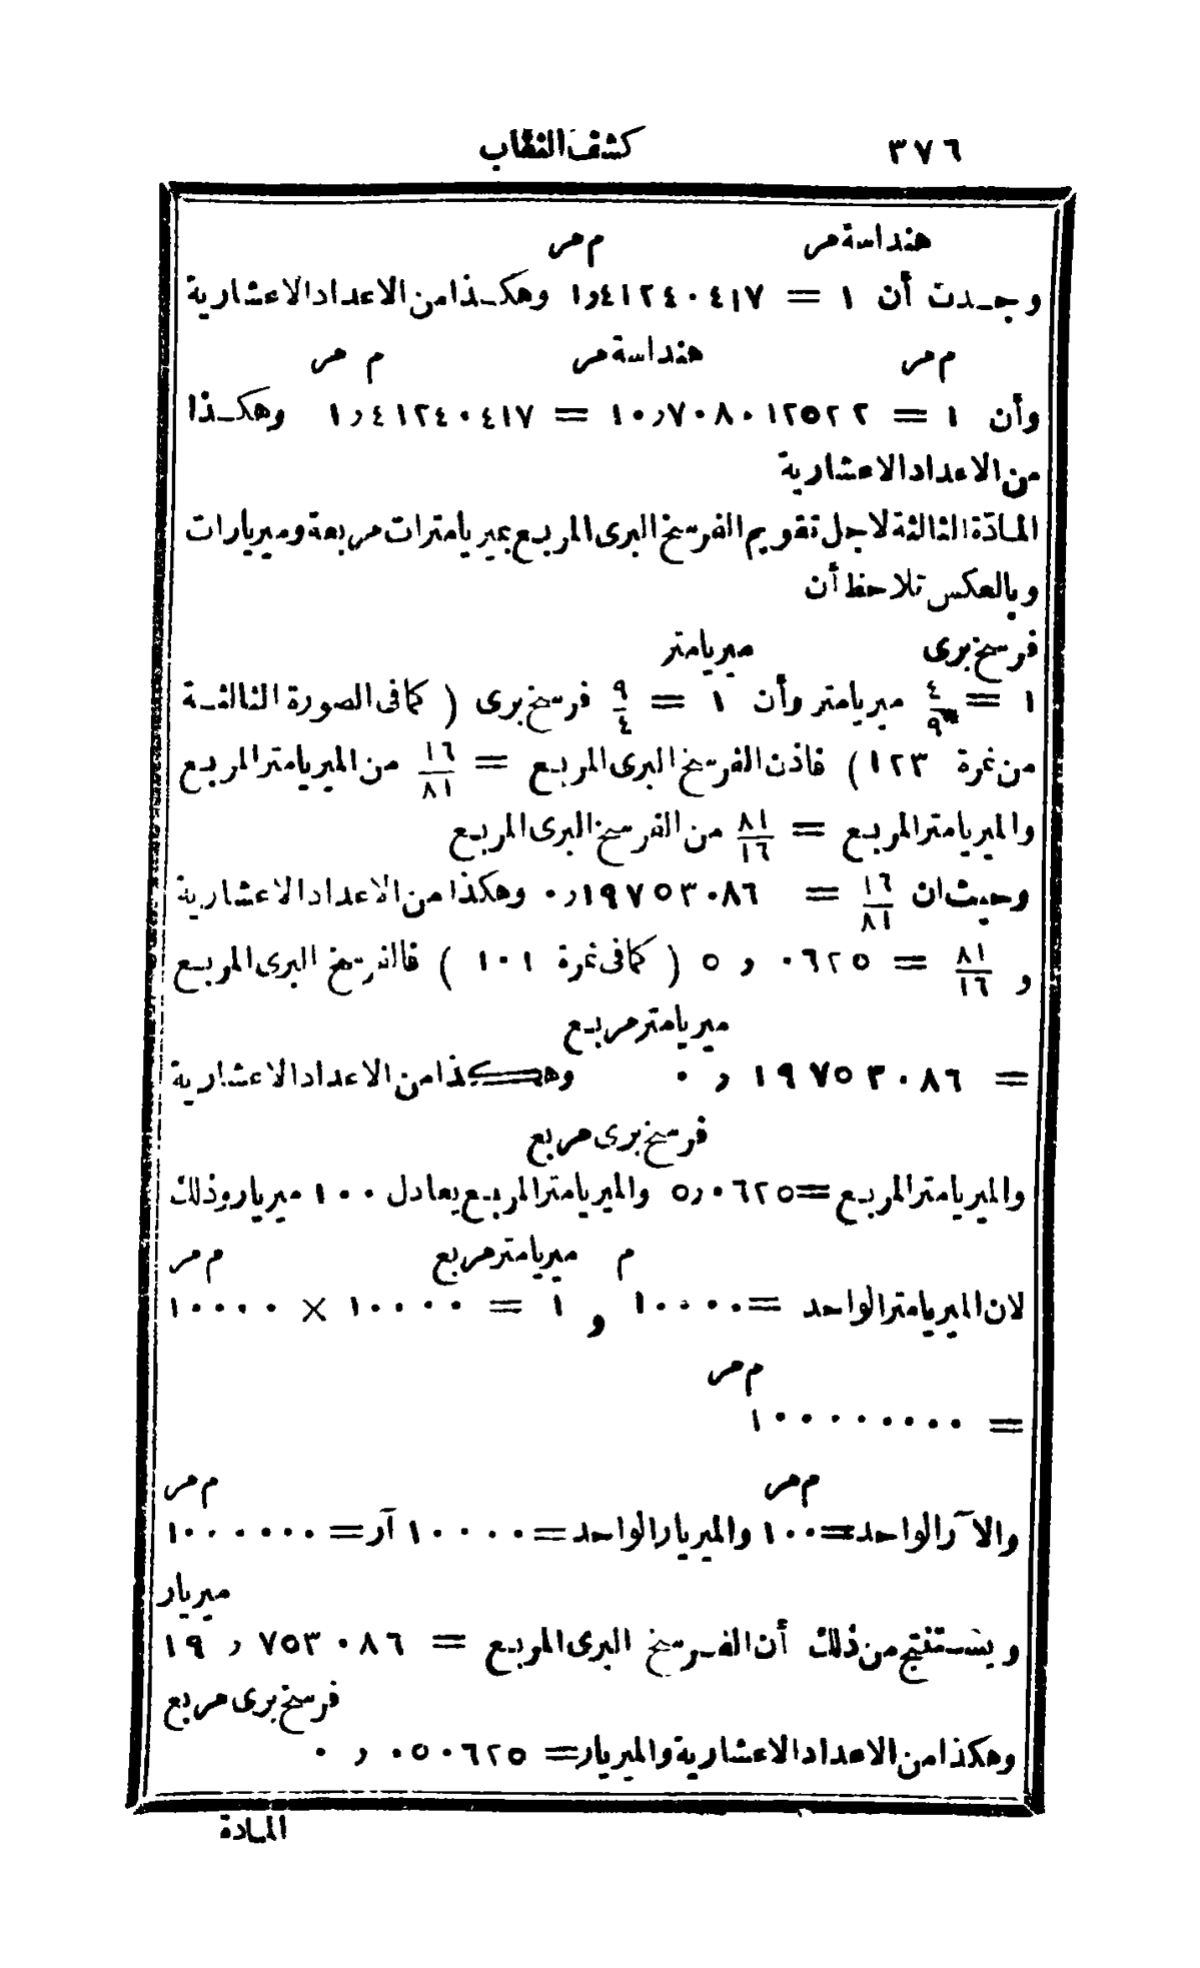 ٣٧٦ كشف النقاب
هنداسة مر م مر
وجدت أن ١ = ١٫٤١٢٤٠٤١٧ وهكذا من الاعداد الاعشارية
م مر هنداسة مر م مر
وأن ١ = ١٠٫٧٠٨٠١٢٥٢٢ = ١٫٤١٢٤٠٤١٧ وهكذا
من الاعداد الاعشارية
المادّة الثالثة لاجل تقويم الفرسخ البرى المربع بميريامترات مربعة وميريارات
وبالعكس تلاحظ أن
فرسخ برى ميريامتر
١ = ٤/٩ ميريامتر وأن ١ = ٩/٤ فرسخ برى ( كما فى الصورة الثالثة
من نمرة ١٢٣ ) فاذن الفرسخ البرى المربع = ١٦/٨١ من الميريامتر المربع
والميريامتر المربع = ٨١/١٦ من الفرسخ البرى المربع
وحيث ان ١٦/٨١ = ٠٫١٩٧٥٣٠٨٦ وهكذا من الاعداد الاعشارية
و ٨١/١٦ = ٥٫٠٦٢٥ ( كما فى نمرة ١٠١ ) فالفرسخ البرى المربع
ميريامتر مربع
= ٠٫١٩٧٥٣٠٨٦ وهكذا من الاعداد الاعشارية
فرسخ برى مربع
والميريامتر المربع = ٥٫٠٦٢٥ والميريامتر المربع يعادل ١٠٠ ميريار وذلك
م ميريامتر مربع م مر
لان الميريامتر الواحد = ١٠٠٠٠ و ١ = ١٠٠٠٠ × ١٠٠٠٠
م مر
= ١٠٠٠٠٠٠٠٠
م مر م مر
والآر الواحد = ١٠٠ والميريار الواحد = ١٠٠٠٠ آر = ١٠٠٠٠٠٠
ميريار
ويستنتج من ذلك أن الفرسخ البرى المربع = ١٩٫٧٥٣٠٨٦
فرسخ برى مربع
وهكذا من الاعداد الاعشارية والميريار = ٠٫٠٥٠٦٢٥
المادة